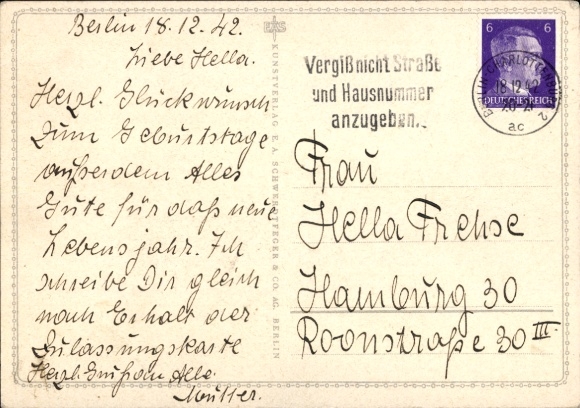 Berlin 18.12.42.
Liebe Hella.
Herzl. Glückwunsch
zum Geburtstage
außerdem Alles
Gute für daß neue
Lebensjahr. Ich
schreibe Dir gleich
nach Erhalt der
Zulassungskarte
Herzl. Gruß an Alle.
Mutter.
KUNSTVERLAG E. A. SCHWERDTFEGER & CO. AG. BERLIN
Vergiß nicht Straße
und Hausnummer
anzugeben.
6 6
DEUTSCHES REICH
BERLIN-CHARLOTTENBURG 2
18.12.42
ac
Frau
Hella Frehse
Hamburg 30
Roonstraße 30 III.